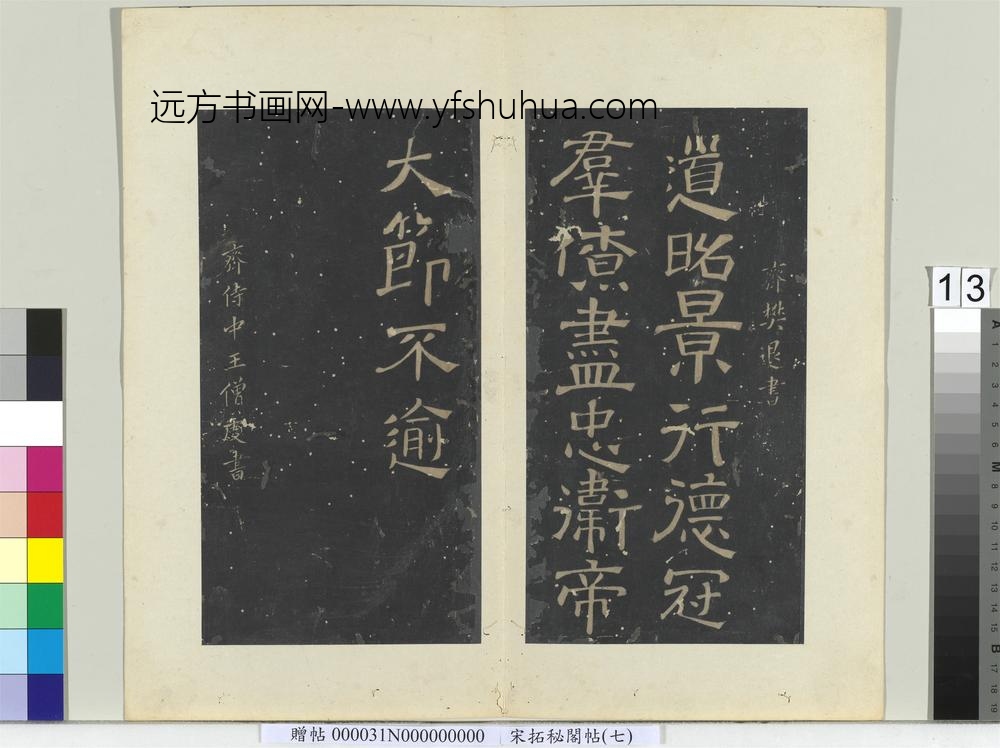 远方书画网-www.yfshuhua.com
齊樊遜書
道昭景行德冠
羣僚盡忠衛帝
大節不逾
齊侍中王僧虔書
13
贈帖 000031N000000000 宋拓秘閣帖(七)
A 1 2 3 4 5 6 M 8 9 10 11 12 13 14 15 B 17 18 19